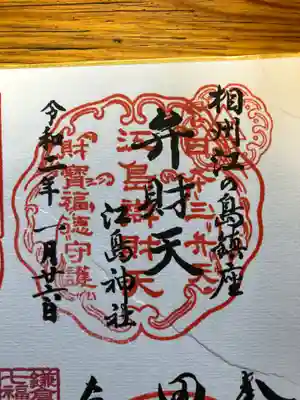 相州江の島鎮座
弁財天
江島神社
令和二年一月廿六日
日本三弁天
江島辨財天
財寶福徳守護
鎌倉
七福